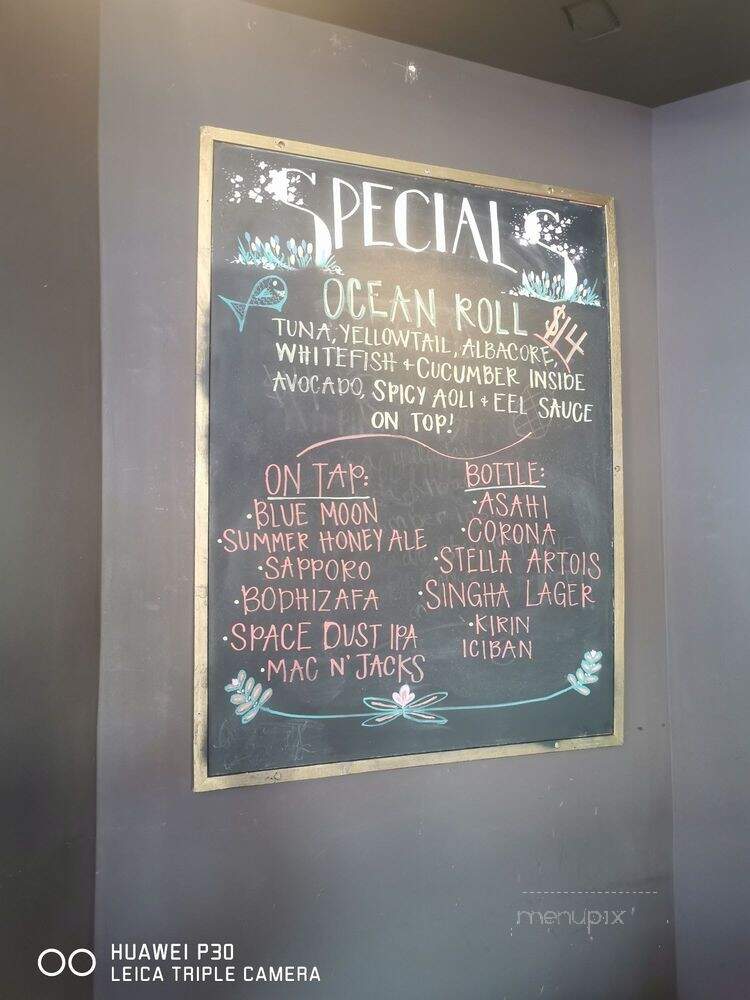 SPECIALS
OCEAN ROLL $14
TUNA, YELLOWTAIL, ALBACORE,
WHITEFISH + CUCUMBER INSIDE
AVOCADO, SPICY AOLI + EEL SAUCE
ON TOP!
ON TAP:
• BLUE MOON
• SUMMER HONEY ALE
• SAPPORO
• BODHIZAFA
• SPACE DUST IPA
• MAC N' JACKS
BOTTLE:
• ASAHI
• CORONA
• STELLA ARTOIS
• SINGHA LAGER
• KIRIN
ICIBAN
menupix
HUAWEI P30
LEICA TRIPLE CAMERA